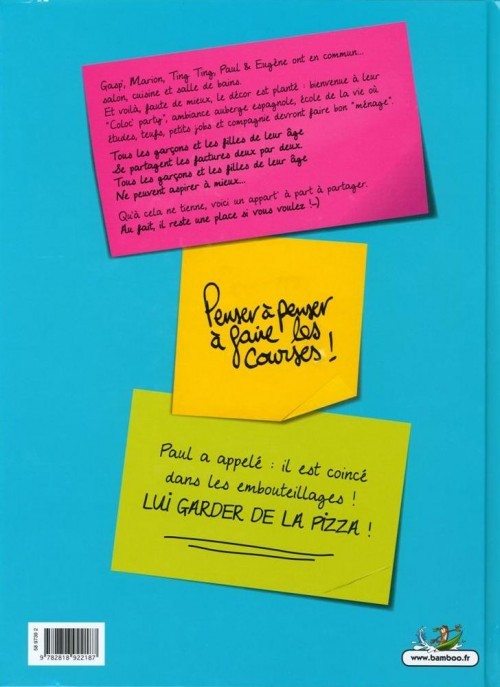 Gaspi, Marion, Ting Ting, Paul & Eugène ont en commun...
salon, cuisine et salle de bains.
Et voilà, faute de mieux, le décor est planté : bienvenue à leur
"Coloc' party", ambiance auberge espagnole, école de la vie où
études, teufs, petits jobs et compagnie devront faire bon "ménage".
Tous les garçons et les filles de leur âge
Se partagent les factures deux par deux.
Tous les garçons et les filles de leur âge
Ne peuvent aspirer à mieux...
Qu'à cela ne tienne, voici un appart' à part à partager.
Au fait, il reste une place si vous voulez !...)
Penser à penser
à faire les
courses !
Paul a appelé : il est coincé
dans les embouteillages !
LUI GARDER DE LA PIZZA !
9 782818 922187
www.bamboo.fr